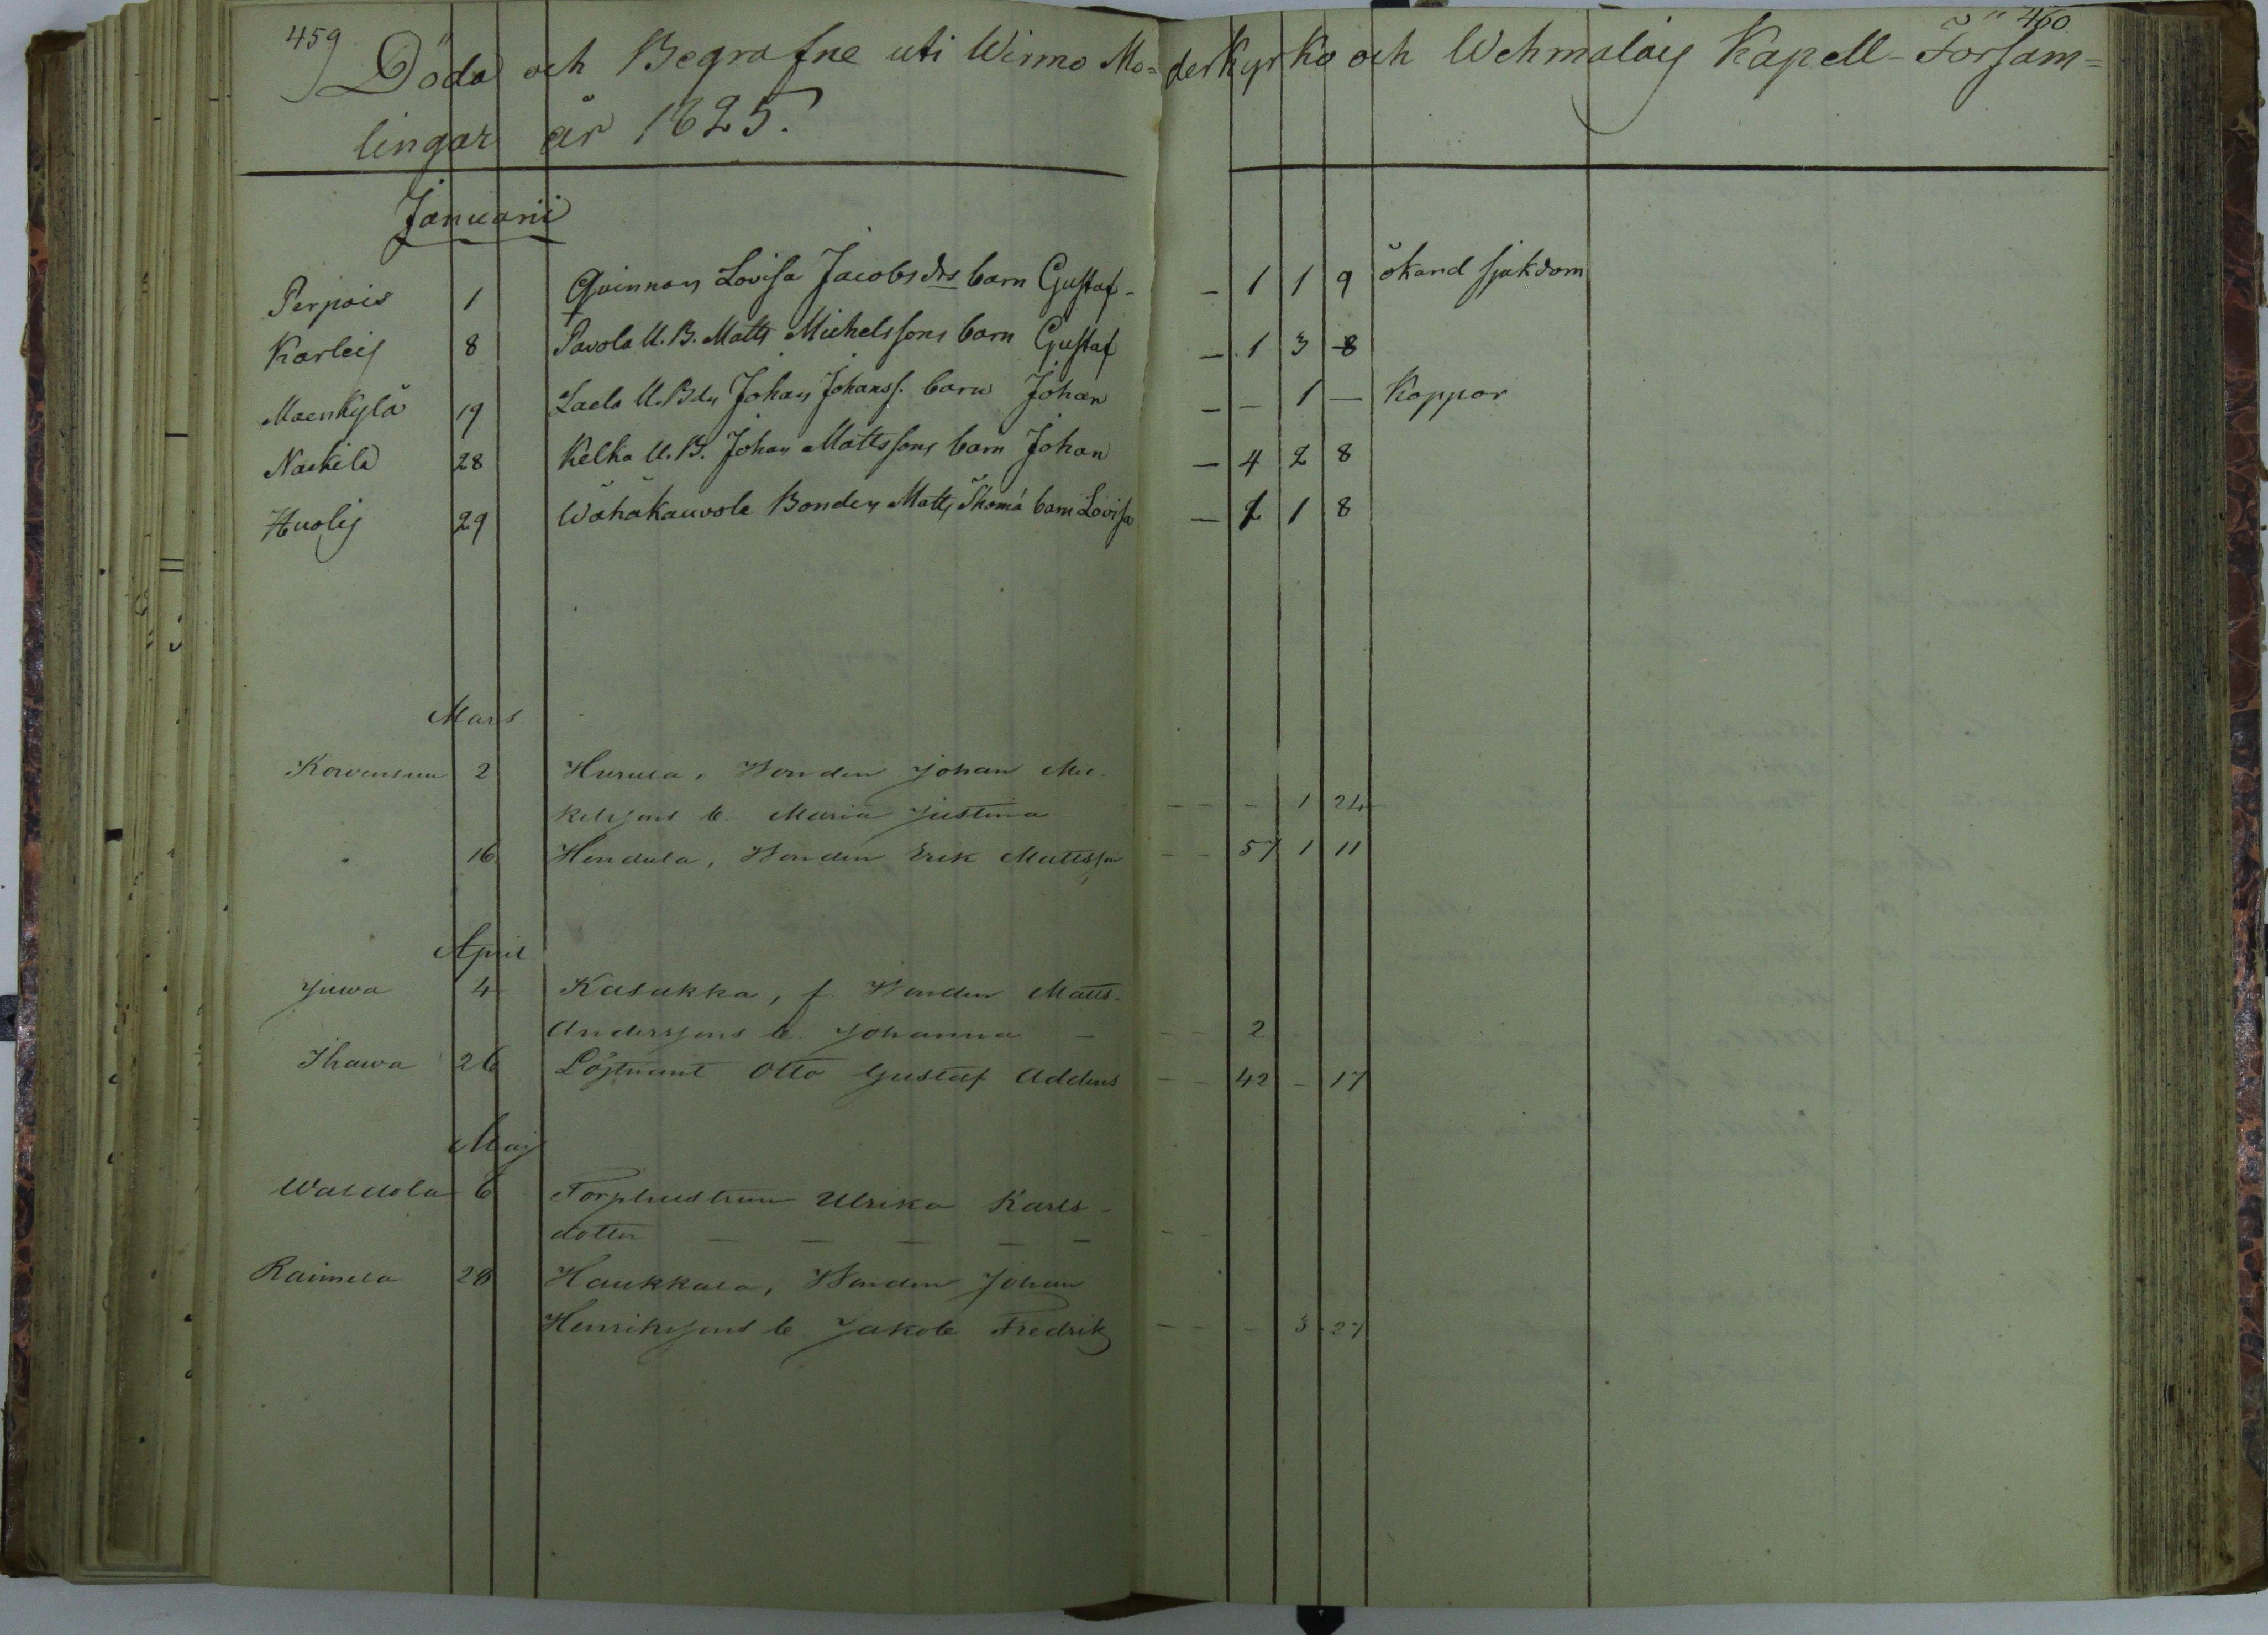 459 460
Döda och Begrafne uti Wirmo Mo=derkyrko och Wehmalais Kapell-Försam=
lingar år 1825.
Januarii
Perpois 1 Qvinnans Lovisa Jacobsdrs barn Gustaf - — 1 1 9 okänd sjukdom
Karleis 8 Pavola U. B. Matts Michelssons barn Gustaf — 1 3 8
Maenkylä 19 Laela U. Bdn Johan Johanss. barn Johan — — 1 — Koppor
Naekilä 28 Kelka U. B. Johan Mattssons barn Johan — 4 2 8
Huolis 29 Wähäkauvola Bonden Matts Thomæ barn Lovisa — 2 1 8
Mars
Korvensuu 2 Hurula, Bonden Johan Mic-
kelssons b. Maria Justina — — — 1 24
" 16 Hendula, Bonden Erik Mattsson — — 57 1 11
April
Juva 4 Kasakka, f. Bonden Matts
Anderssons b. Johanna — — — 2
Ihava 26 Löjtnant Otto Gustaf Addens — — 42 — 17
Maj
6 Torphustrun Ulrika Karls-
dotter — — — — — — —
Raimela 28 Haukkala, Bonden Johan
Henrikssons b Jakob Fredrik — — — 3 27